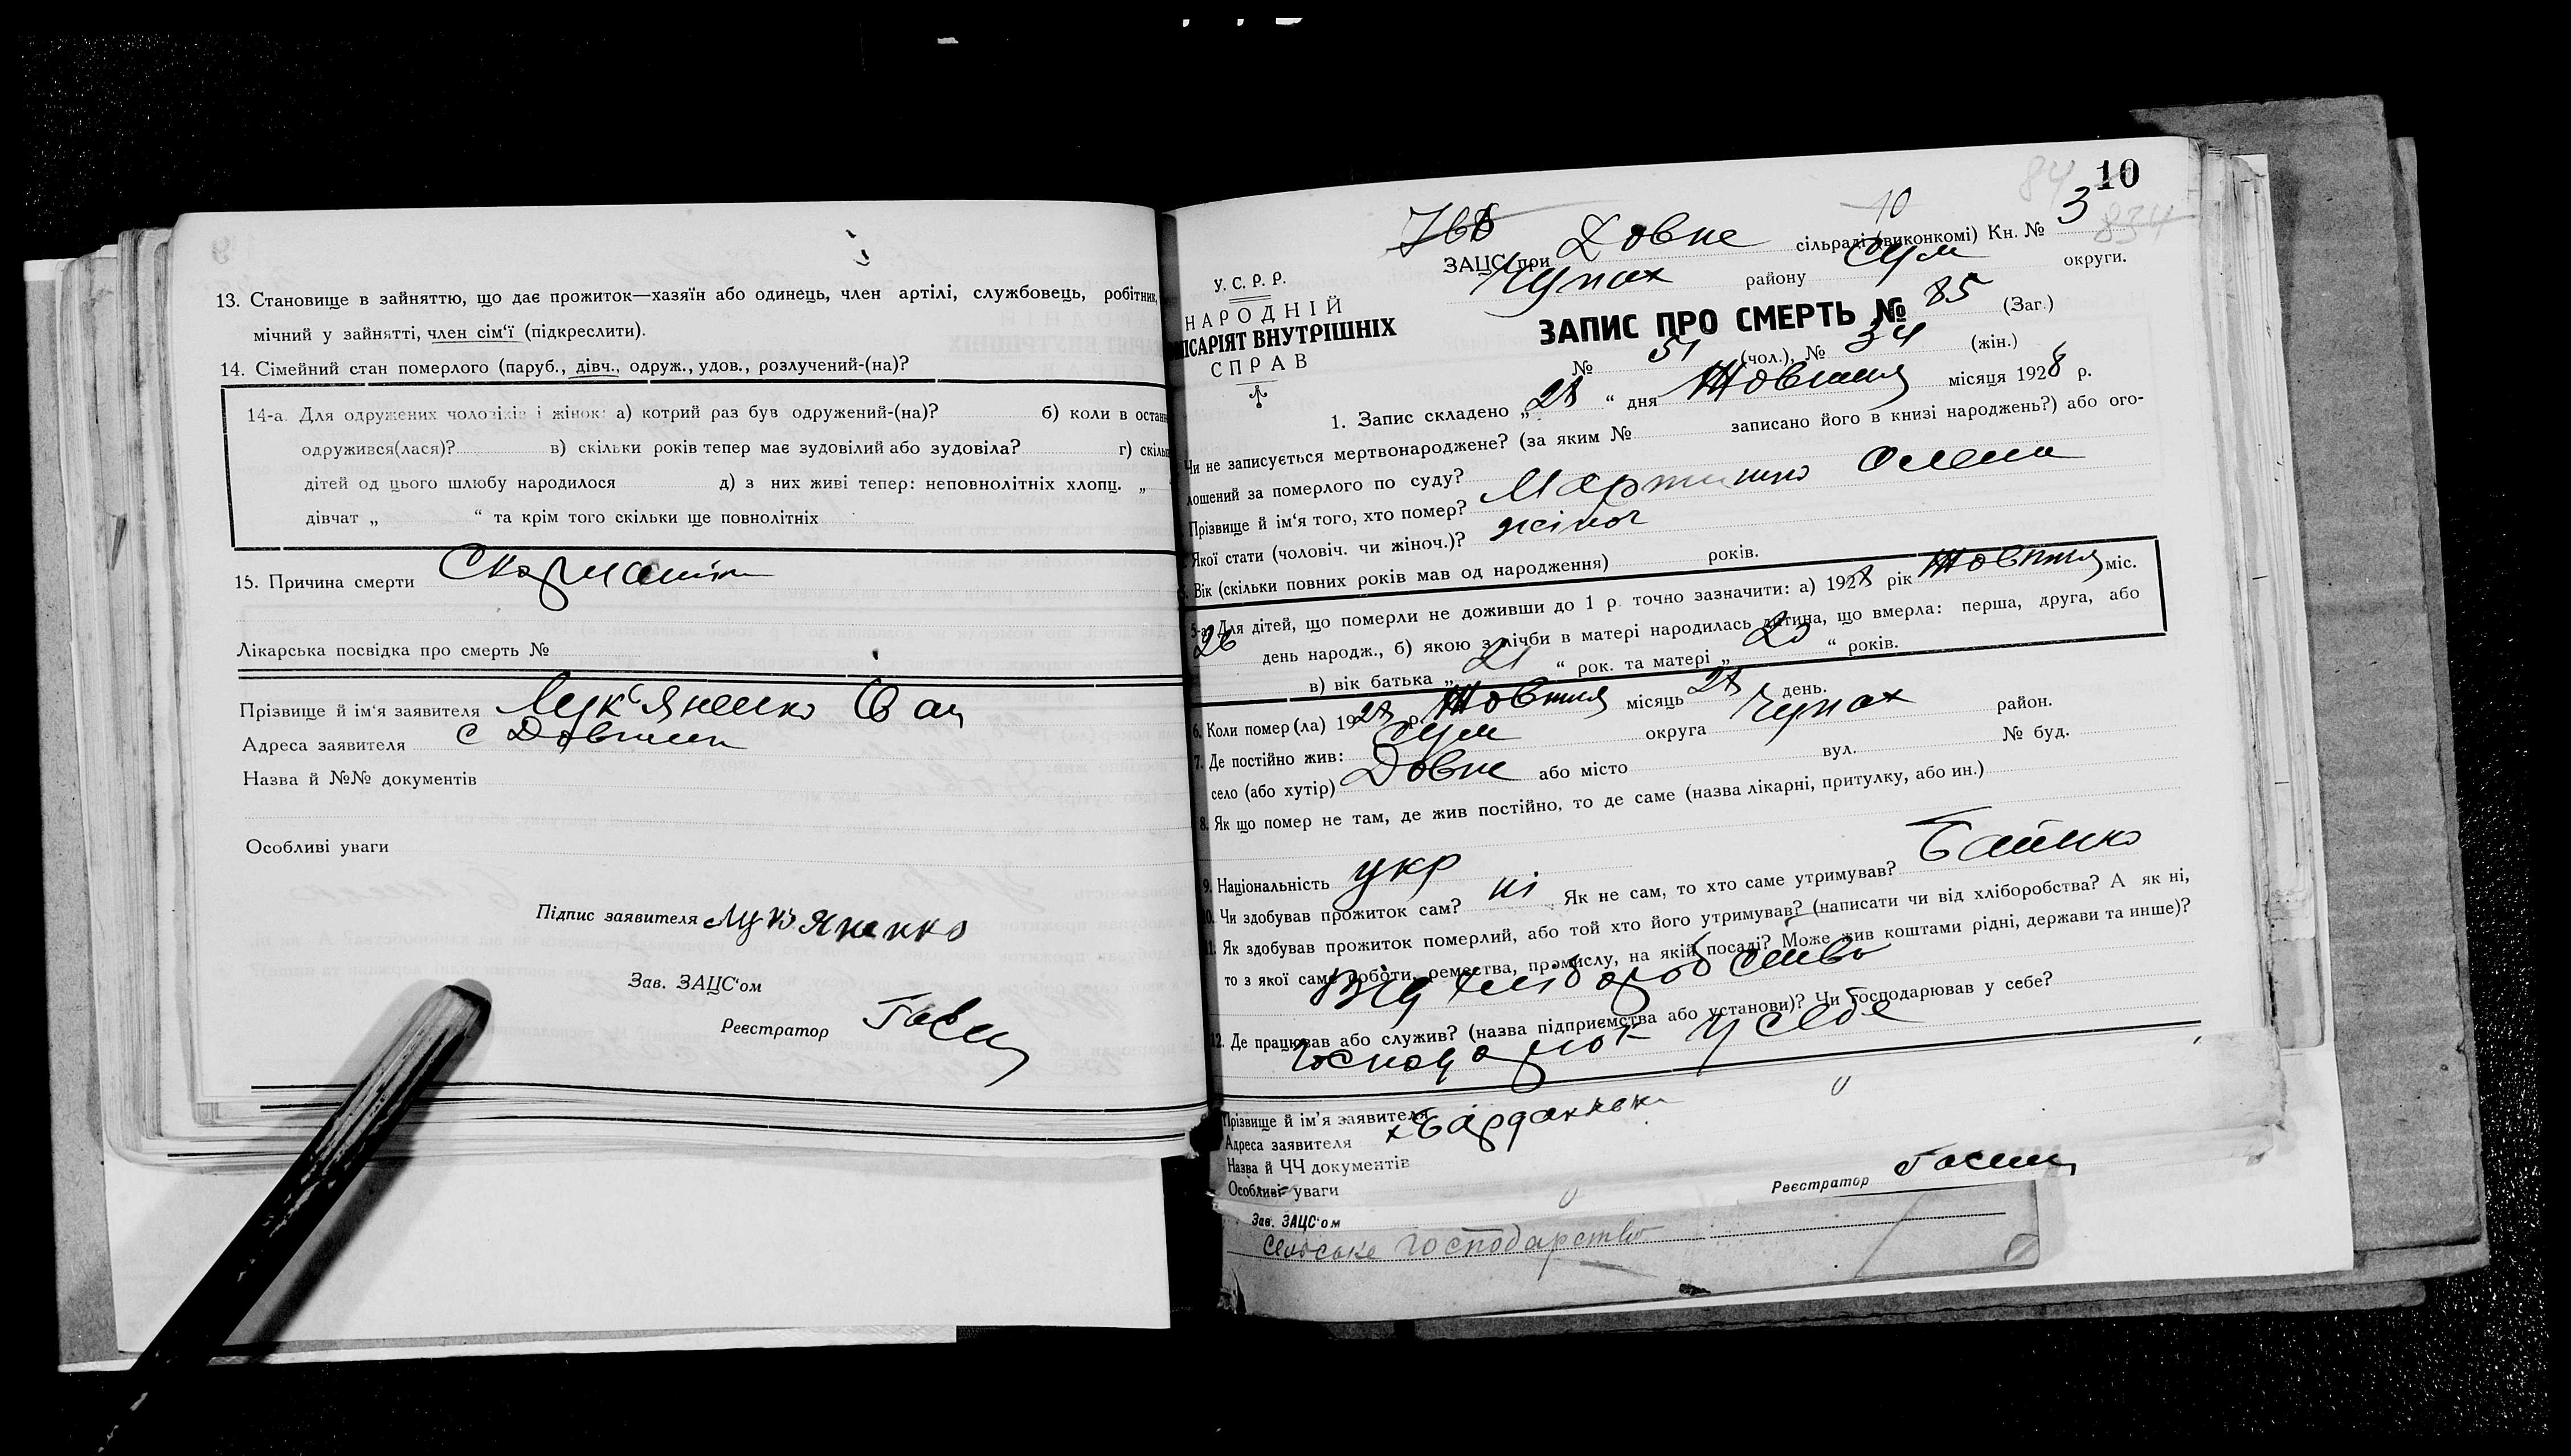 13. Становище в зайняттю, що дає прожиток—хазяїн або одинець, член артілі, службовець, робітник,
мічний у зайнятті, член сім'ї (підкреслити).
14. Сімейний стан померлого (паруб., дівч., одруж., удов., розлучений-(на)?
14-а. Для одружених чоловіків і жінок: а) котрий раз був одружений-(на)? б) коли в остан
одружився(лася)? в) скільки років тепер має зудовілий або зудовіла? г) скільк
дітей од цього шлюбу народилося д) з них живі тепер: неповнолітніх хлопц. „
дівчат „ “ та крім того скільки ще повнолітніх
15. Причина смерти
Лікарська посвідка про смерть №
Прізвище й ім'я заявителя Лук‘яненко Ован
Адреса заявителя с
Назва й №№ документів
Особливі уваги
Підпис заявителя Лукяненко
Зав. ЗАЦС‘ом
Реєстратор
10
84
834
768
10
ЗАЦС при Довже сільраді (виконкомі) Кн. № 3
Чупах району Сум округи.
У. С. Р. Р.
НАРОДНІЙ
ІСАРІЯТ ВНУТРІШНІХ
СПРАВ
ЗАПИС ПРО СМЕРТЬ № 85 (Заг.)
№ 51 (чол.), № 34 (жін.)
1. Запис складено „28“ дня Жовтня місяця 1928 р.
Чи не записується мертвонароджене? (за яким № записано його в книзі народжень?) або ого-
лошений за померлого по суду?
Прізвище й ім‘я того, хто помер? Мартинко Олена
Якої стати (чоловіч. чи жіноч.)? жіноч
Вік (скільки повних років мав од народження) років.
5-а. Для дітей, що померли не доживши до 1 р. точно зазначити: а) 1928 рік Жовтня міс.
26 день народж., б) якою з лічби в матері народилась дитина, що вмерла: перша, друга, або
в) вік батька „21“ рок. та матері „20“ років.
6. Коли помер(ла) 1928 р. Жовтня місяць 28 день.
7. Де постійно жив: Сум округа Чупах район.
село (або хутір) Довже або місто вул. № буд.
8. Як що помер не там, де жив постійно, то де саме (назва лікарні, притулку, або ин.)
9. Національність укр
10. Чи здобував прожиток сам? ні Як не сам, то хто саме утримував? Батько
11. Як здобував прожиток померлий, або той хто його утримував? (написати чи від хліборобства? А як ні,
то з якої саме роботи, ремества, промислу, на якій посаді? Може жив коштами рідні, держави та инше)?
Від хліборобства
12. Де працював або служив? (назва підприємства або установи)? Чи господарював у себе?
Господарював у себе
Прізвище й ім'я заявителя
Адреса заявителя
Назва й ЧЧ документів
Особливі уваги
Реєстратор
Зав. ЗАЦС'ом
Сельське господарство